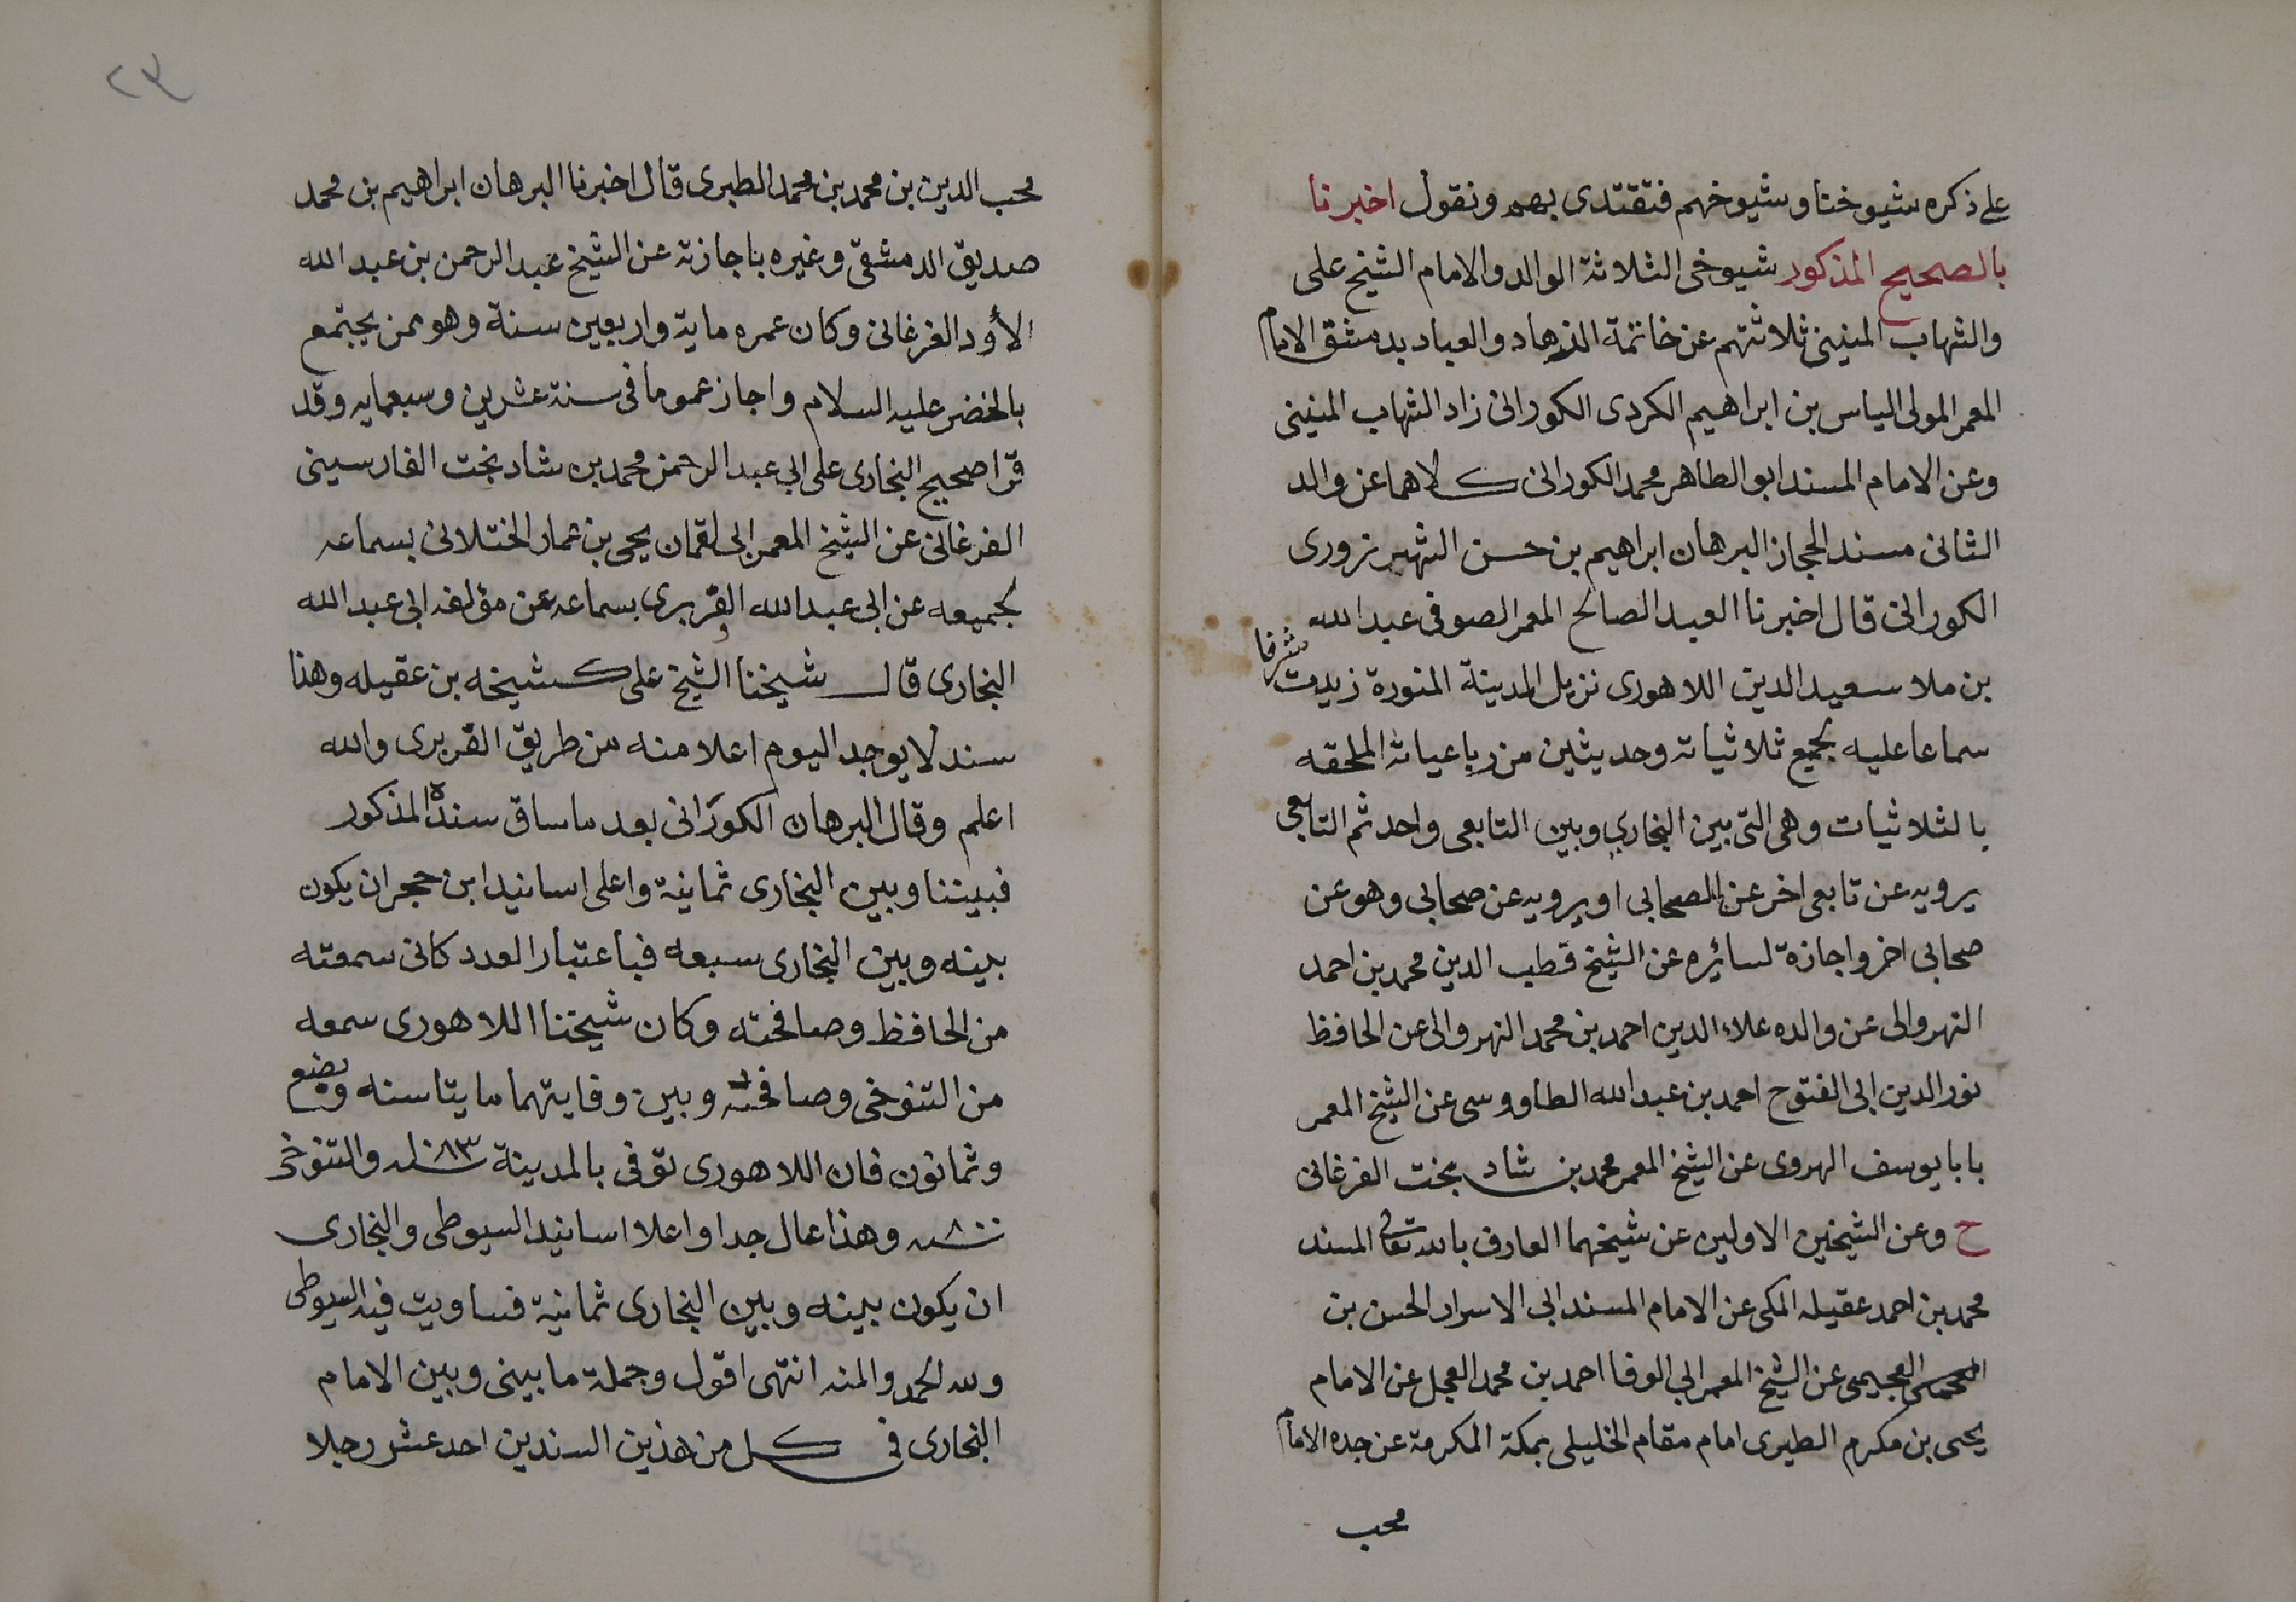 على ذكره شيوخنا وشيوخهم فتقتدى بهم ونقول اخبرنا
بالصحيح المذكور شيوخى الثلاثة الوالد والامام الشيخ على
والشهاب المنينى ثلاثتهم عن خاتمة الزهاد والعباد بدمشق الامام
المعمر المولى الياس بن ابراهيم الكردى الكورانى زاد الشهاب المنينى
وعن الامام المسند ابو الطاهر محمد الكورانى كلاهما عن والد
الثانى مسند الحجاز البرهان ابراهيم بن حسن الشهرزورى
الكورانى قال اخبرنا العبد الصالح المعمر الصوفى عبد الله
بن ملا سعيد الدين اللاهورى نزيل المدينة المنورة زيدت شرفا
سماعا عليه لجميع ثلاثياته وحديثين من رباعياته الملحقه
بالثلاثيات وهى التى بين البخارى وبين التابعى واحد ثم التابعى
يرويه عن تابعى اخر عن الصحابى او يرويه عن صحابى وهو عن
صحابى اخر واجازة لسائره عن الشيخ قطب الدين محمد بن احمد
النهروالى عن والده علاء الدين احمد بن محمد النهروالى عن الحافظ
نور الدين ابى الفتوح احمد بن عبد الله الطاووسى عن الشيخ المعمر
بابا يوسف الهروى عن الشيخ المعمر محمد بن شاد بخت الفرغانى
ح وعن الشيخين الاولين عن شيخهما العارف بالله تعالى المسند
محمد بن احمد عقيله المكى عن الامام المسند ابى الاسرار الحسن بن
العجيمى عن الشيخ المعمر ابى الوفا احمد بن محمد العجل عن الامام
يحيى بن مكرم الطبرى امام مقام الخليلى بمكة المكرمة عن جده الامام
محب
٢٣
محب الدين بن محمد بن محمد الطبرى قال اخبرنا البرهان ابراهيم بن محمد
صديق الدمشقى وغيره باجازته عن الشيخ عبد الرحمن بن عبد الله
الأود الفرغانى وكان عمره ماية واربعين سنة وهو ممن يجتمع
بالخضر عليه السلام واجاز عموما فى سنة عشرين وسبعمايه وقد
قرا صحيح البخارى على ابى عبد الرحمن محمد بن شاد بخت الفارسينى
الفرغانى عن الشيخ المعمر ابى لقمان يحيى بن عمار الختلانى بسماعه
لجميعه عن ابى عبد الله الفربرى بسماعه عن مؤلفه ابى عبد الله
البخارى قال شيخنا الشيخ على كشيخه بن عقيله وهذا
سند لا يوجد اليوم اعلا منه من طريق الفربرى والله
اعلم وقال البرهان الكورانى بعد ما ساق سنده المذكور
فبيننا وبين البخارى ثمانية واعلى اسانيد ابن حجر ان يكون
بينه وبين البخارى سبعه فباعتبار العدد كانى سمعته
من الحافظ وصافحته وكان شيخنا اللاهورى سمعه
من التنوخى وصافحه وبين وفايتهما مايتا سنه وبضع
وثمانون فان اللاهورى توفى بالمدينة سنه ١٠٨٣ والتنوخى
سنه ٨٠٠ وهذا عال جدا واعلا اسانيد السيوطى والبخارى
ان يكون بينه وبين البخارى ثمانية فساويت فيه السيوطى
ولله الحمد والمنه انتهى اقول وجملة ما بينى وبين الامام
البخارى فى كل من هذين السندين احد عشر رجلا